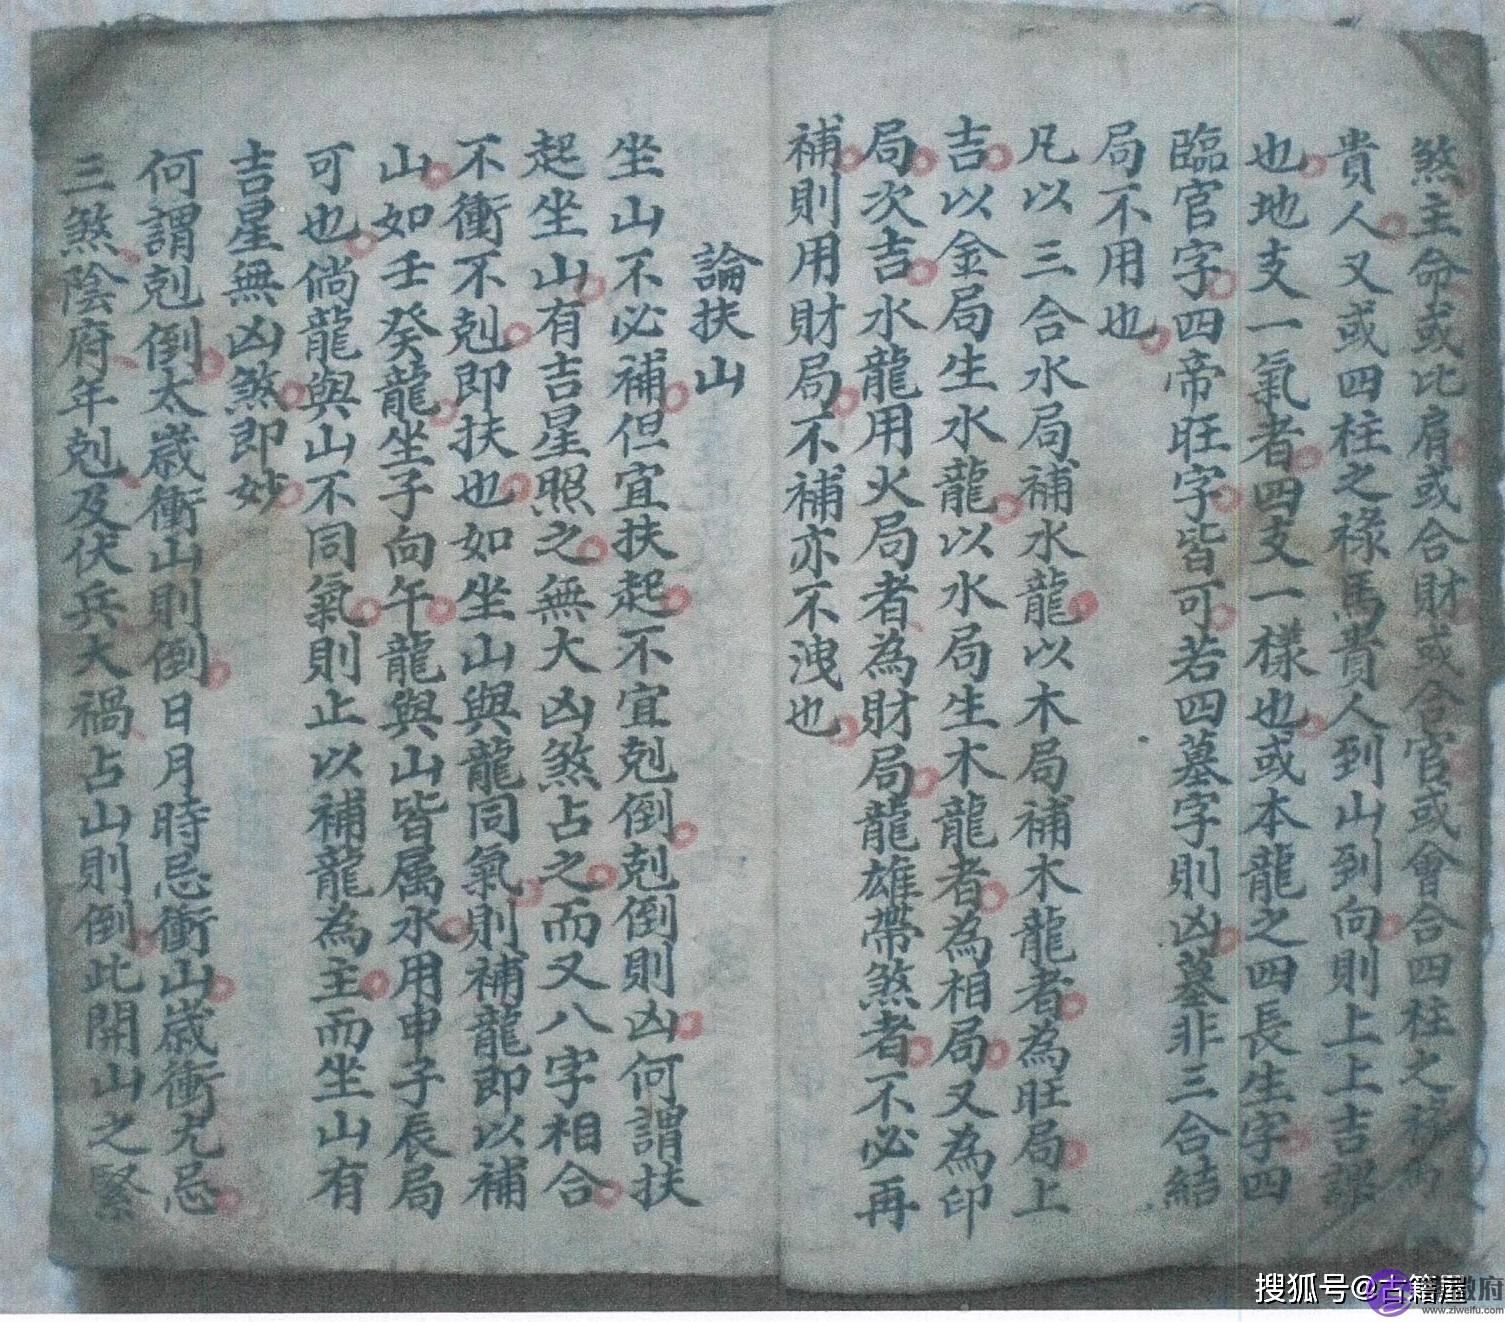 煞主命或比肩或合財或合官或會合四柱之祿馬
貴人又或四柱之祿馬貴人到山到向則上上吉課
也地支一氣者四支一樣也或本龍之四長生字四
臨官字四帝旺字皆可若四墓字則凶墓非三合結
局不用也
凡以三合水局補水龍以木局補木龍者為旺局上
吉以金局生水龍以水局生木龍者為相局又為印
局次吉水龍用火局者為財局龍雄帶煞者不必再
補則用財局不補亦不洩也
論扶山
坐山不必補但宜扶起不宜剋倒剋倒則凶何謂扶
起坐山有吉星照之無大凶煞占之而又八字相合
不衝不剋即扶也如坐山與龍同氣則補龍即以補
山如壬癸龍坐子向午龍與山皆属水用申子辰局
可也倘龍與山不同氣則止以補龍為主而坐山有
吉星無凶煞即妙
何謂剋倒太嵗衝山則倒日月時忌衝山嵗衝尤忌
三煞陰府年剋及伏兵大禍占山則倒此開山之緊
搜狐号@古籍屋
www.ziweifu.com